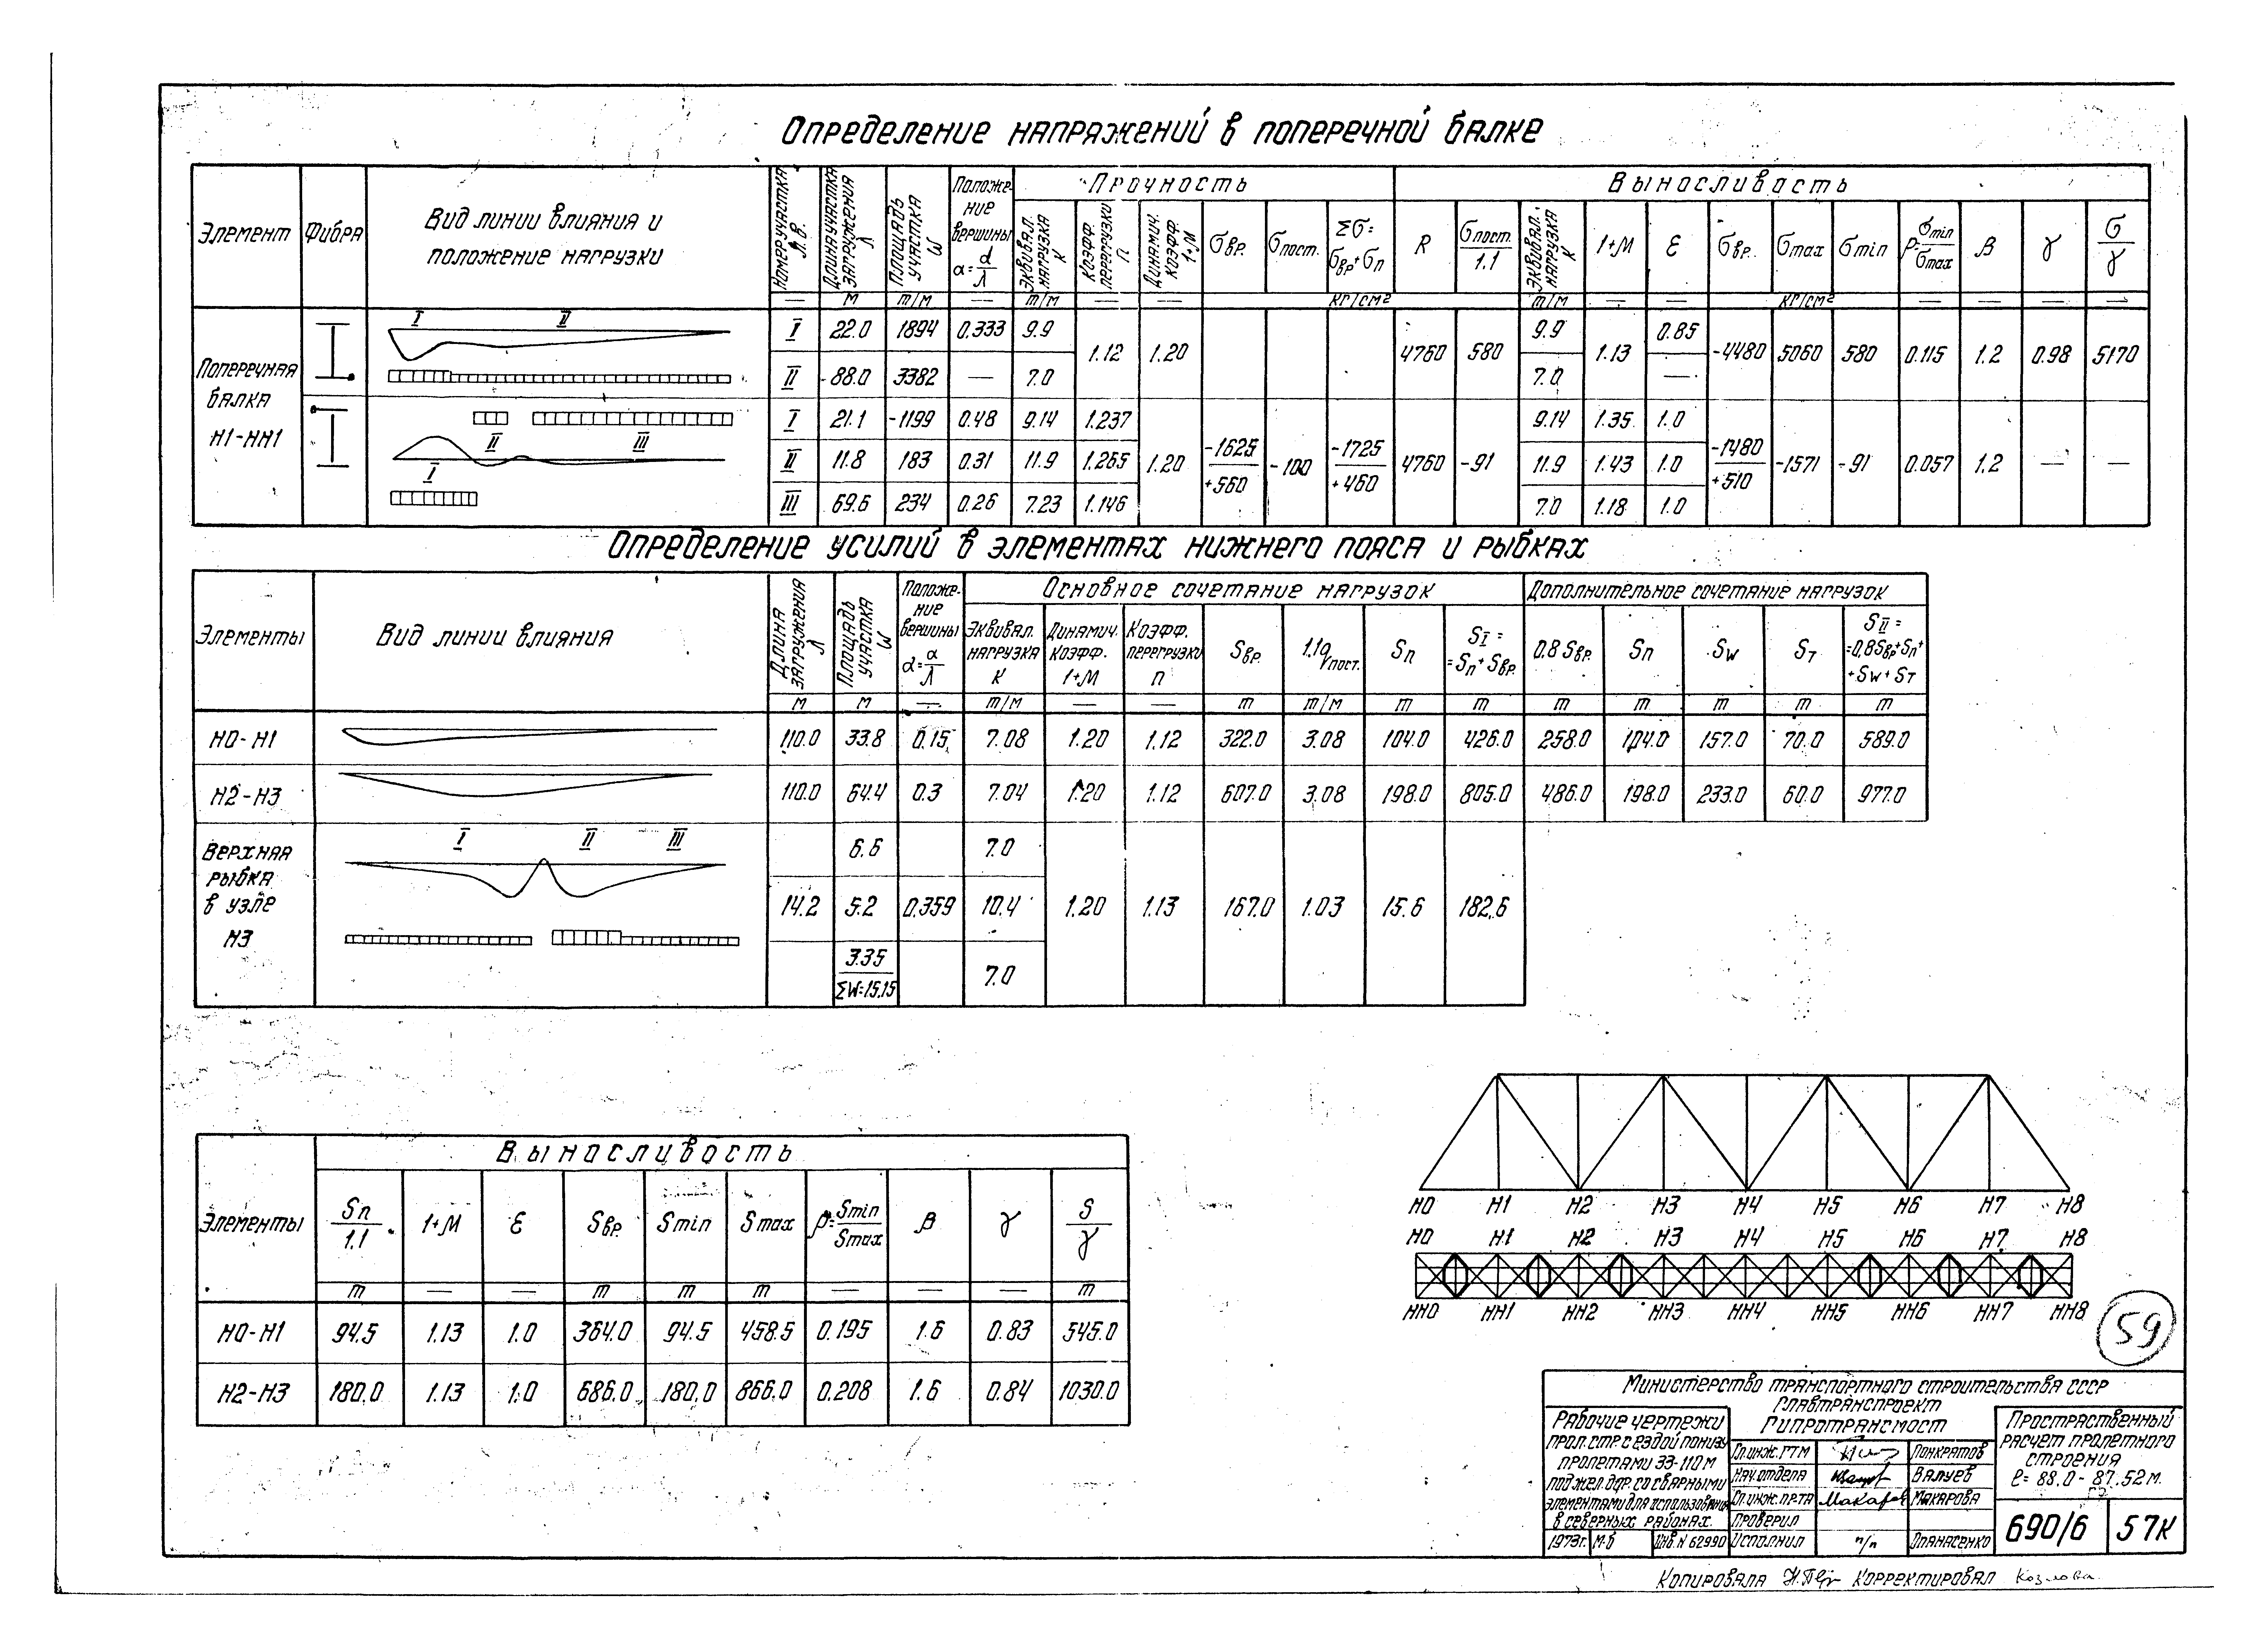 Определение напряжений в поперечной балке
Элемент
Фибра
Вид линии влияния и
положение нагрузки
Номер участка л.в.
Длина участка загружения λ
Площадь участка ω
Положе-
ние
вершины
α=d/λ
Прочность
Выносливость
Эквивал. нагрузка К
Коэфф. перегрузки п
Динамич. коэфф. 1+М
σвр.
σпост.
Σσ=
σвр+σп
R
σпост./1.1
Эквивал. нагрузка К
1+М
ε
σвр.
σmax
σmin
ρ=σmin/σmax
β
γ
σ/γ
— м т/м — т/м — — кг/см² т/м — — кг/см² — — — —
Поперечная
балка
Н1-НН1
I II
I 22.0 1894 0.333 9.9 1.12 1.20 4760 580 9.9 1.13 0.85 -4480 5060 580 0.115 1.2 0.98 5170
II 88.0 3382 — 7.0 7.0 —
II III
I
I 21.1 -1199 0.48 9.14 1.237 9.14 1.35 1.0
II 11.8 183 0.31 11.9 1.265 1.20 -1625/+560 -100 -1725/+460 4760 -91 11.9 1.43 1.0 -1480/+510 -1571 -91 0.057 1.2 — —
III 69.6 234 0.26 7.23 1.146 7.0 1.18 1.0
Определение усилий в элементах нижнего пояса и рыбках
Элементы
Вид линии влияния
Длина загружения λ
Площадь участка ω
Положе-
ние
вершины
α=a/λ
Основное сочетание нагрузок
Дополнительное сочетание нагрузок
Эквивал. нагрузка К
Динамич. коэфф. 1+М
Коэфф. перегрузки п
Sвр.
1.1qпост.
Sп
SI=
=Sп+Sвр.
0.8Sвр.
Sп
Sw
Sт
SII=
=0.8Sвр+Sп+
+Sw+Sт
м м — т/м — — т т/м т т т т т т т
Н0-Н1 110.0 33.8 0.15 7.08 1.20 1.12 322.0 3.08 104.0 426.0 258.0 104.0 157.0 70.0 589.0
Н2-Н3 110.0 64.4 0.3 7.04 1.20 1.12 607.0 3.08 198.0 805.0 486.0 198.0 233.0 60.0 977.0
Верхняя
рыбка
в узле
Н3
I II III
6.6 7.0
14.2 5.2 0.359 10.4 1.20 1.13 167.0 1.03 15.6 182.6
3.35
ΣW=15.15
7.0
Выносливость
Элементы
Sп/1.1
1+М
ε
Sвр.
Smin
Smax
ρ=Smin/Smax
β
γ
S/γ
т — — т т т — — — т
Н0-Н1 94.5 1.13 1.0 364.0 94.5 458.5 0.195 1.6 0.83 545.0
Н2-Н3 180.0 1.13 1.0 686.0 180.0 866.0 0.208 1.6 0.84 1030.0
Н0 Н1 Н2 Н3 Н4 Н5 Н6 Н7 Н8
Н0 Н1 Н2 Н3 Н4 Н5 Н6 Н7 Н8
НН0 НН1 НН2 НН3 НН4 НН5 НН6 НН7 НН8
59
Министерство транспортного строительства СССР
Главтранспроект
Гипротрансмост
Рабочие чертежи
прол. стр. с ездой понизу
пролетами 33-110 м
под жел. дор. со сварными
элементами для использования
в северных районах.
1973г. М-б Инв. N 62990
Гл.инж. ГТМ Панкратов
Нач. отдела Валуев
Гл.инж. пр-та Макарова
Проверил
Исполнил п/п Опанасенко
Простраственный
расчет пролетного
строения
ℓ= 88.0 - 87.52 м.
690/6
57К
Копировала
Корректировал Козлова